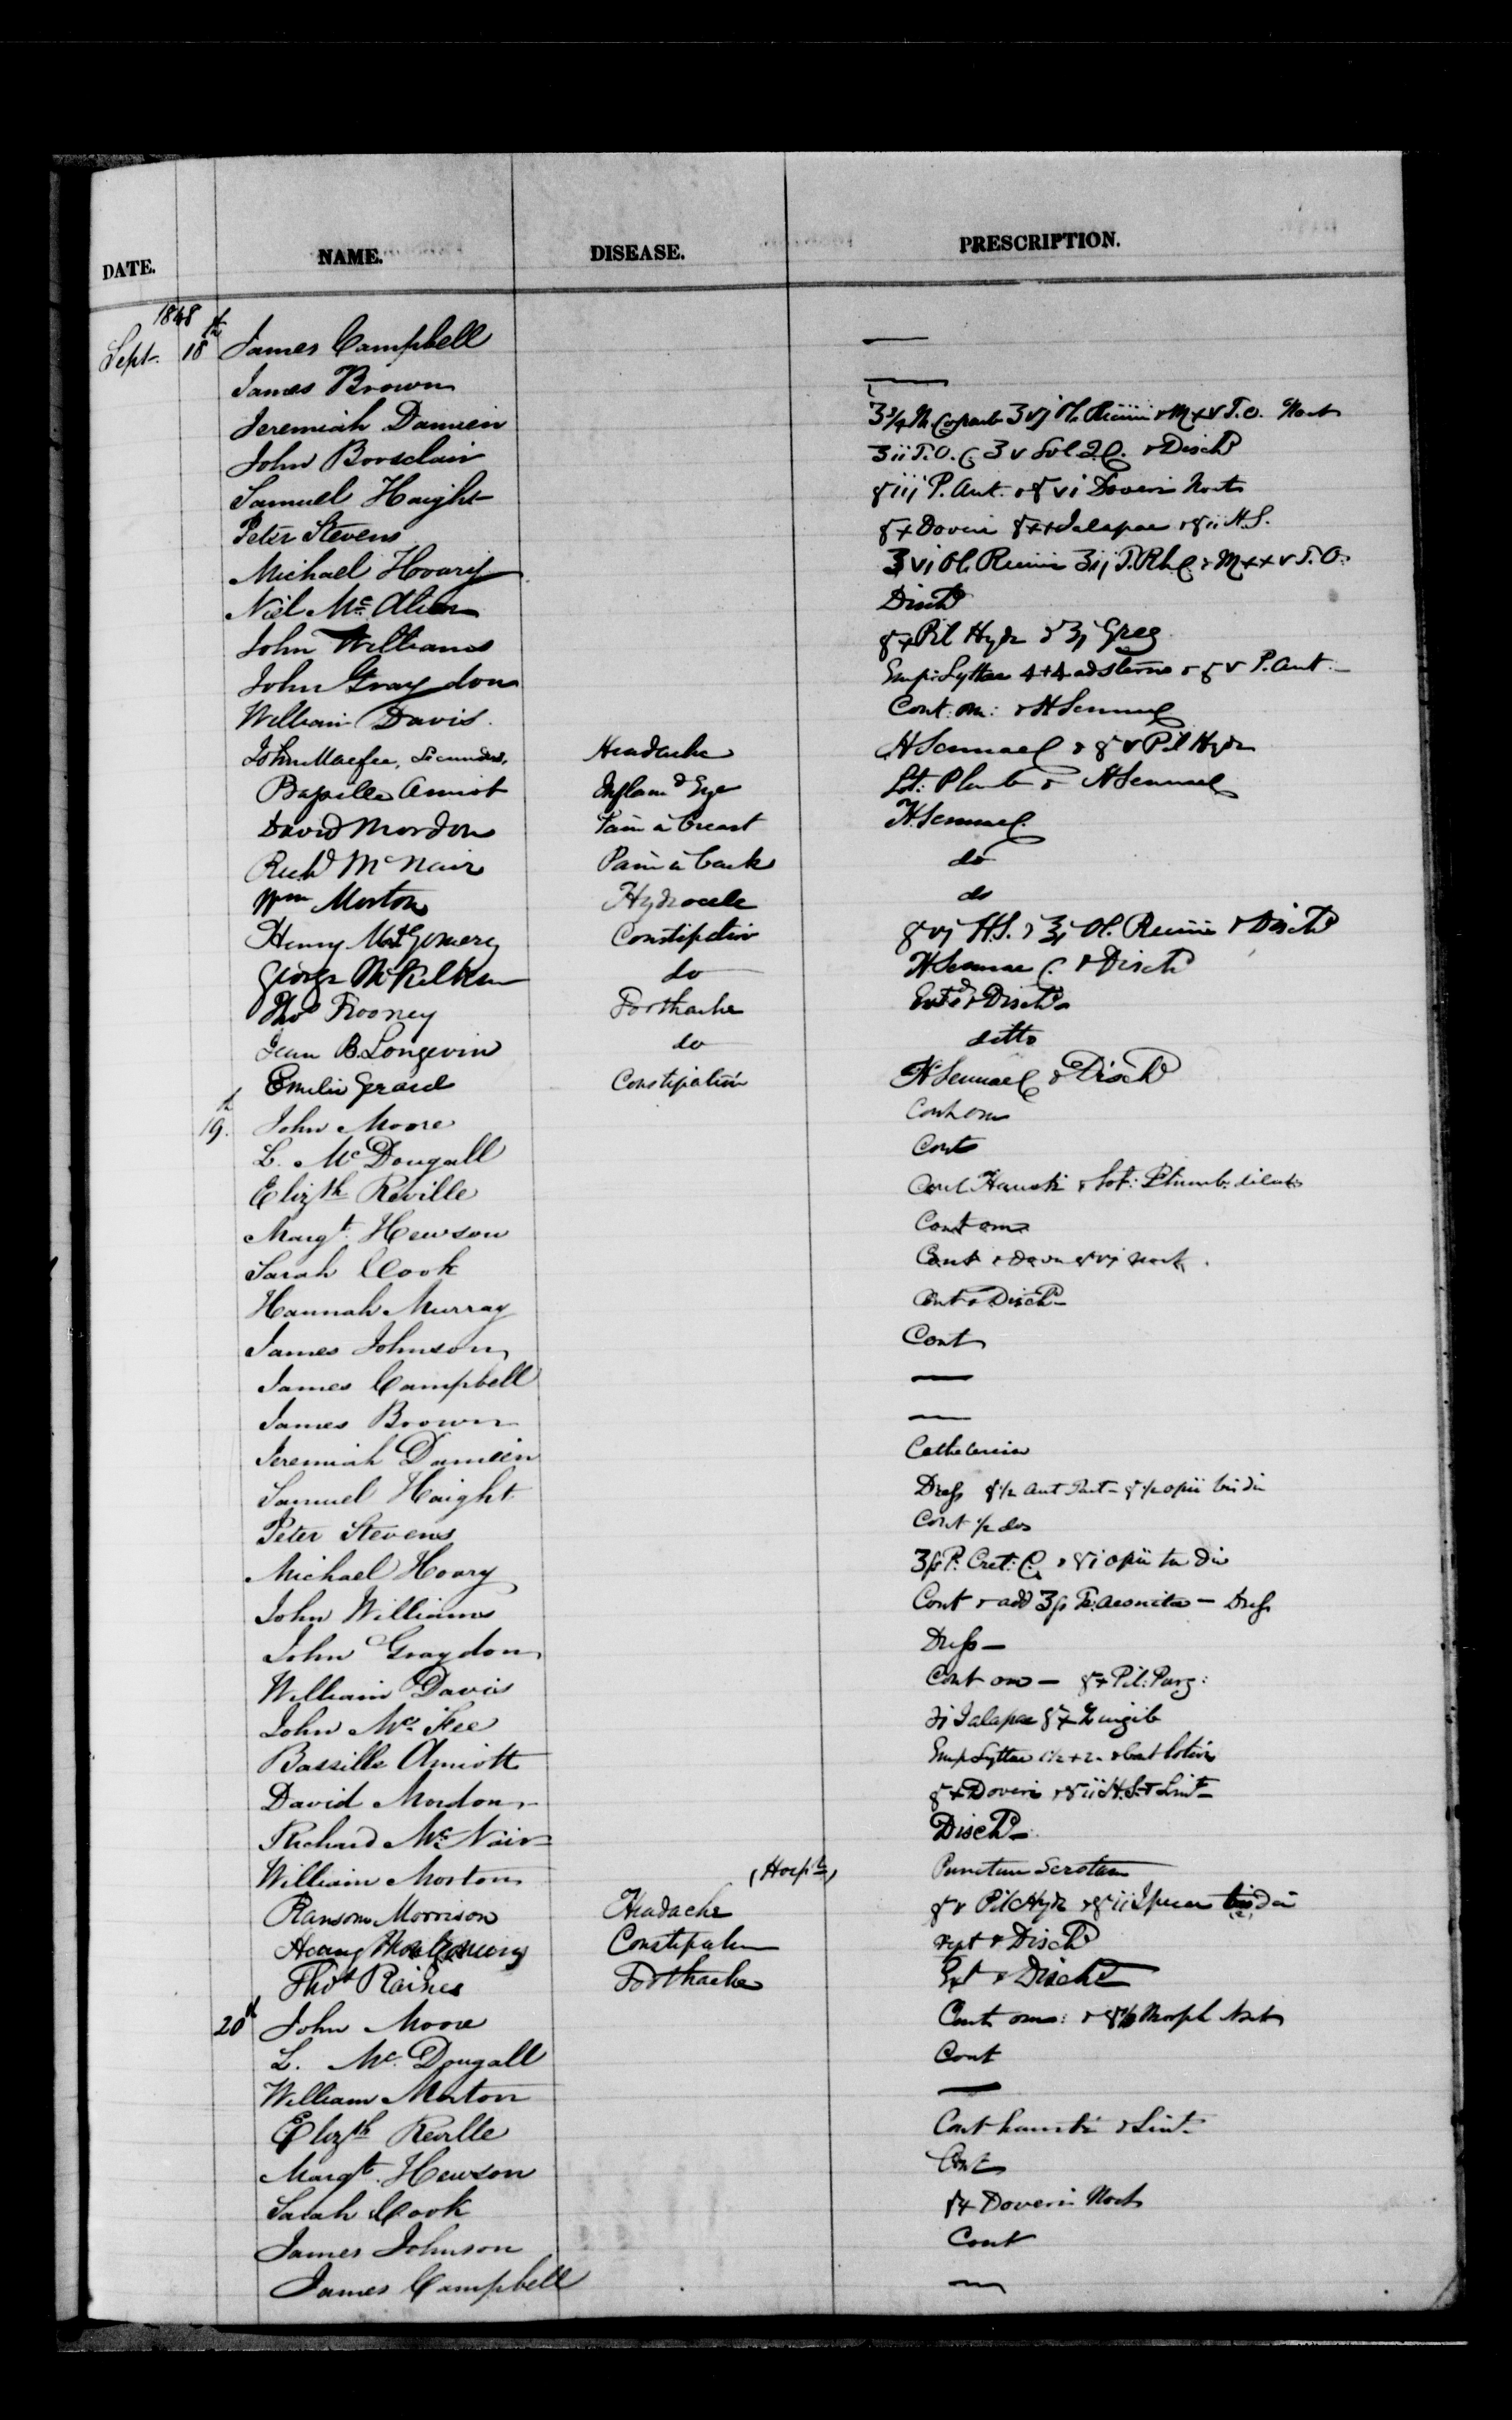 DATE. NAME. DISEASE. PRESCRIPTION.
1848
Sept. 18th James Campbell —
James Brown —
Jeremiah Damien
John Borsclair 3ii T.O.C. 3v Sol. 2C. & Dischd
Samuel Haight giij P. Ant. & gvi Doveri Noct
Peter Stevens gx Doveri gxx Jalapae & gii H.S.
Michael Hoary 3vj Ol. Ricini 3ij T. Rh C. & Mxxv T.O.
Niel Mc Dischd
John Williams gx Pil Hydr & 3j Greg
John Graydon Emp: Lyttae 4+4 ad sterno & gv P. Ant. —
William Davis. Cont: om: & H Sennae C
John Macfee, Secundus, Headache H Sennae C & gv Pil Hydr
Bapille Amiot Inflamd Eye Lot: Plumb & H Sennae C
David Mordon Pain in breast H. Sennae C.
Richd Mc Nair Pain in back do
Wm Morton Hydrocele do
Henry Montgomery Constipation gvj H.S. & 3j Ol. Ricini & Dischd
George do H Sennae C. & Dischd
Thos Rooney Toothache Extd & Dischd
Jean B. Longevin do ditto
Emelie Gerard Constipation H Sennae C & Dischd
19th John Moore Cont om
L. McDougall Cont
Elizth Reville Cont Hausti & Lot: Plumb: dilut
Margt. Hewson Cont om
Sarah Cook Cont & Dover gvj noct.
Hannah Murray Cont & Dischd —
James Johnson Cont
James Campbell —
James Brown —
Jeremiah Damien Catheterism
Samuel Haight Dress g½ Ant Tart — g½ opii bis di
Peter Stevens Cont ½ dos
Michael Hoary 3ss P. Cret: C. & gi opii ter Di
John Williams Cont & add 3ss Tr. aconita — Dress
John Graydon Dress —
William Davis Cont om — gx Pil: Purg:
John Mc. Fee 3i Jalapae gx Zingib
Bassille Amiott Emp Lyttae 1½ + 2 — & Cont lotion
David Mordon gx Doveri & gii H.S. & Lint —
Richard Mc. Nair Dischd —
William Morton (Hospitl) Puncture Scrotum
Ransom Morrison Headache gv Pil Hydr & gii Ipecac bis di
Henry Montgomery Constipation rept & Dischd
Thos Raines Toothache Ext & Dischd
20th John Moore Cont om: & g½ Morph Noct
L. Mc. Dougall Cont
William Morton —
Elizth Reville Cont hausti & Lint —
Margt. Hewson Cont
Sarah Cook gx Doveri Noct
James Johnson Cont
James Campbell —